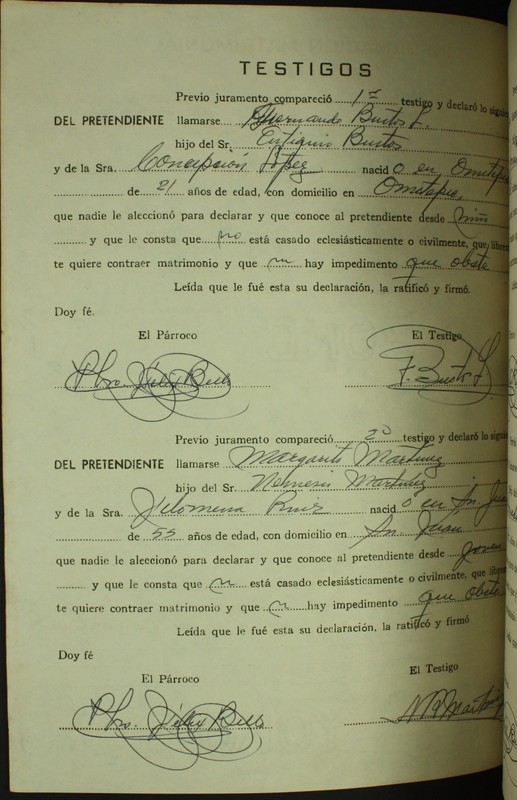 TESTIGOS
Previo juramento compareció 1º testigo y declaró lo siguien
DEL PRETENDIENTE llamarse Bustos L.
hijo del Sr. Eutiquio Bustos
y de la Sra. Concepcion López nació o en Ometepe
de 21 años de edad, con domicilio en Ometepec,
que nadie le aleccionó para declarar y que conoce al pretendiente desde niño
y que le consta que no está casado eclesiásticamente o civilmente, que libre
te quiere contraer matrimonio y que hay impedimento que obste
Leída que le fué esta su declaración, la ratificó y firmó.
Doy fé.
El Párroco El Testigo
Pbro. F. Bustos L.
Previo juramento compareció 2º testigo y declaró lo sigui
DEL PRETENDIENTE llamarse Margarito Martinez
hijo del Sr. Nemesio Martínez
y de la Sra. Filomena Ruiz nació o en Sn. Jua
de 55 años de edad, con domicilio en Sn. Juan
que nadie le aleccionó para declarar y que conoce al pretendiente desde joven
y que le consta que está casado eclesiásticamente o civilmente, que libre
te quiere contraer matrimonio y que hay impedimento que obste
Leída que le fué esta su declaración, la ratificó y firmó
Doy fé
El Párroco El Testigo
Pbro.